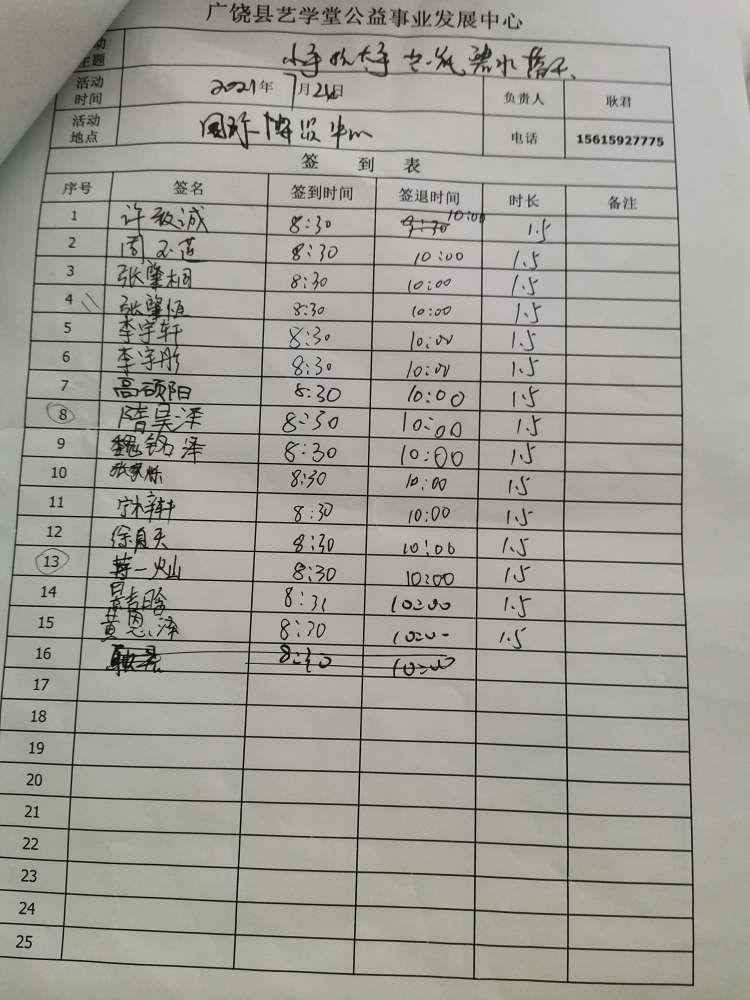 广饶县艺学堂公益事业发展中心
动主题 小手拉大手 共筑碧水蓝天
活动时间 2021年7月24日 负责人 耿君
活动地点 国际博览中心 电话 15615927775
签到表
序号 签名 签到时间 签退时间 时长 备注
1 许敬诚 8:30 9:30 10:00 1.5
2 周玉莲 8:30 10:00 1.5
3 张肇桐 8:30 10:00 1.5
4 张肇恒 8:30 10:00 1.5
5 李宇轩 8:30 10:00 1.5
6 李宇彤 8:30 10:00 1.5
7 高硕阳 8:30 10:00 1.5
8 隋昊泽 8:30 10:00 1.5
9 魏铭泽 8:30 10:00 1.5
10 张家烁 8:30 10:00 1.5
11 8:30 10:00 1.5
12 8:30 10:00 1.5
13 蒋一灿 8:30 10:00 1.5
14 8:31 10:00 1.5
15 黄恩泽 8:30 10:00 1.5
16 8:30 10:00
17
18
19
20
21
22
23
24
25